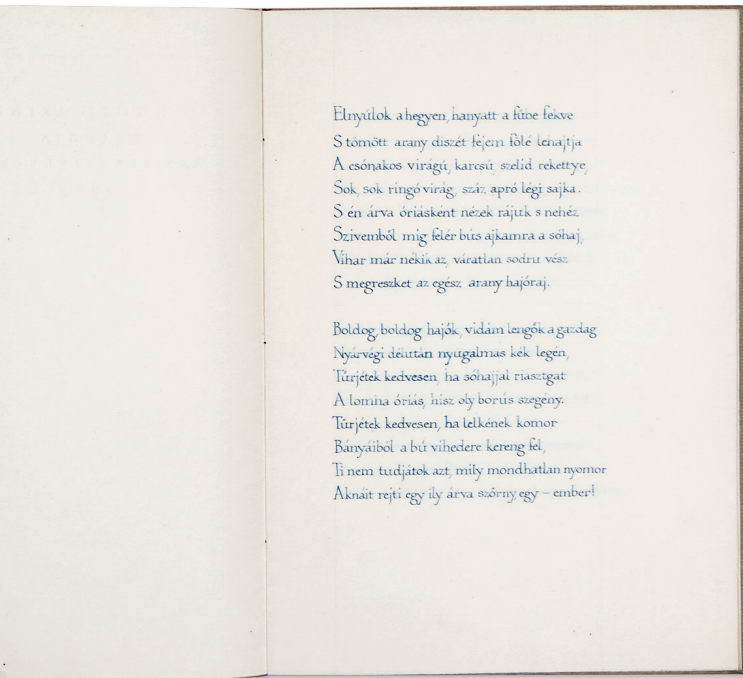 Elnyúlok a hegyen, hanyatt a fűbe fekve
S tömött arany diszét fejem fölé lehajtja
A csónakos virágú, karcsú, szelíd rekettye,
Sok, sok ringó virág, száz apró légi sajka.
S én árva óriásként nézek rájuk s nehéz
Szivemből mig felér bús ajkamra a sóhaj,
Vihar már nékik az, váratlan sodru vész
S megreszket az egész arany hajóraj.
Boldog, boldog hajók, vidám lengők a gazdag
Nyárvégi délután nyugalmas kék legén,
Türjétek kedvesen, ha sóhajjal riasztgat
A lomha óriás, hisz oly borús szegény.
Türjétek kedvesen, ha lelkének komor
Bányáiból a bú vihedere kereng fel,
Ti nem tudjátok azt, mily mondhatlan nyomor
Aknáit rejti egy ily árva szörny, egy – ember!